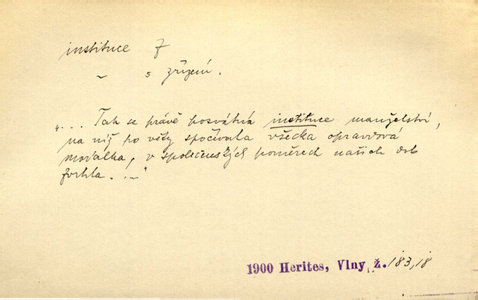 instituce f
~ s zřízení.
„... Tak se právě posvátná instituce manželství,
na níž po věky spočívala všecka opravdová
morálka, v společenských poměrech našich dob
.....“
1900 Herites, Vlny ž. 183,18